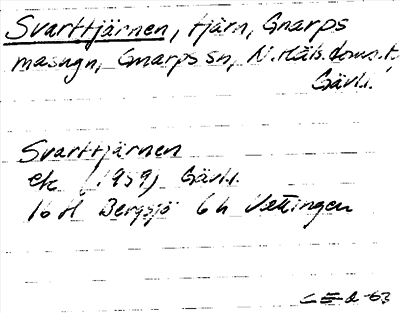 Svarttjärnen, tjärn, Gnarps
masugn, Gnarps sn, N. Häls. doms. t.
Gävl.
Svarttjärnen
ek (1959) Gävl.
16 H Bergsjö 6 h Vettingen
-63